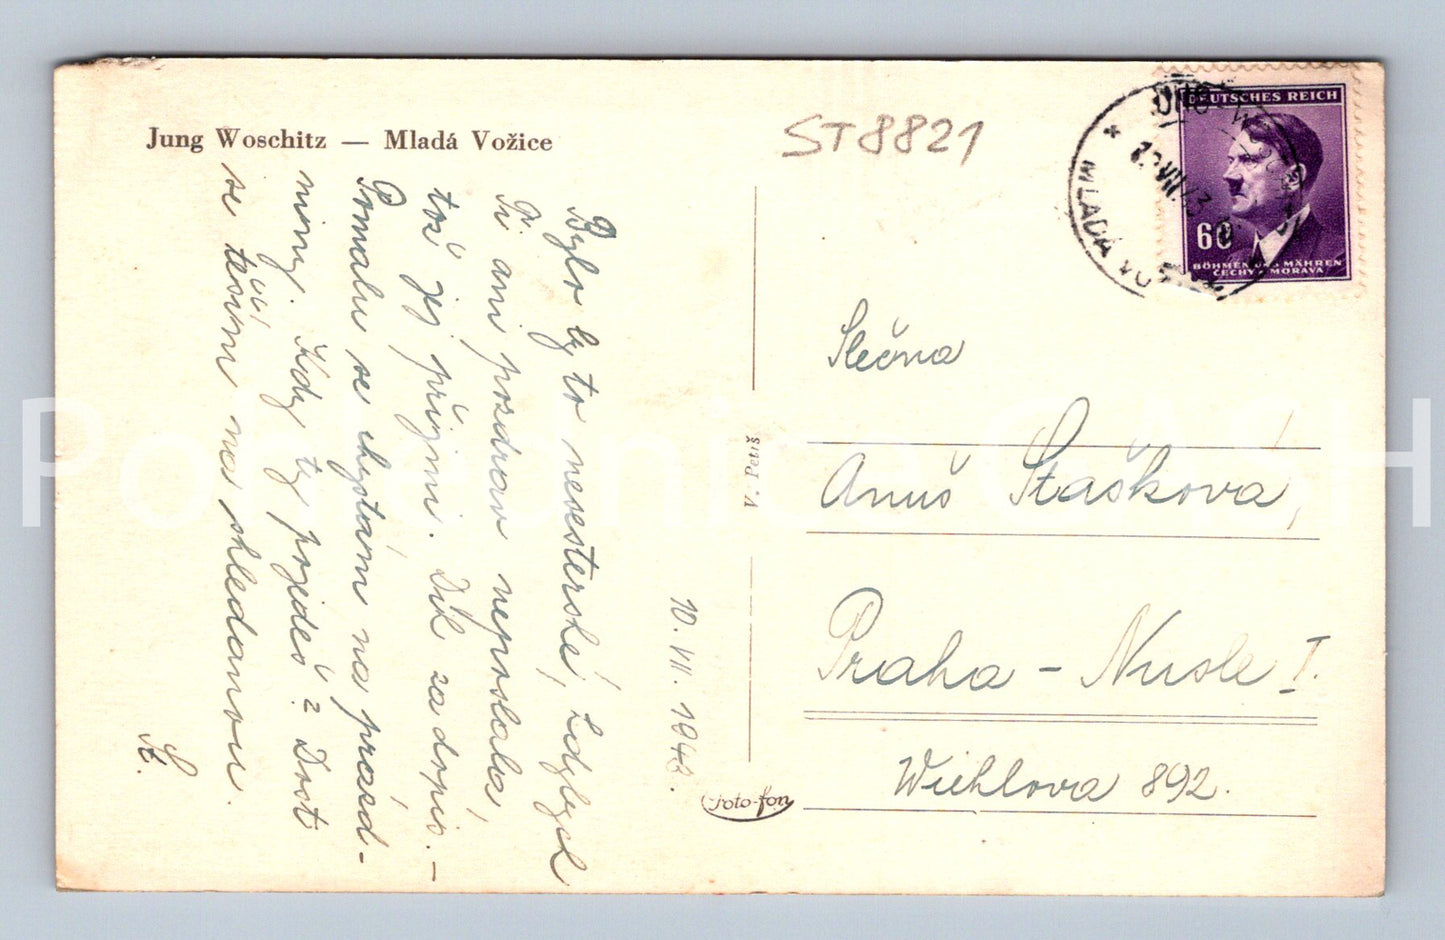 Jung Woschitz — Mladá Vožice
ST8821
DEUTSCHES REICH
60
BÖHMEN UND MÄHREN
ČECHY A MORAVA
MLADÁ VO
10. VII. 1943.
Bylo by to nesesterské, kdybych
Ti ani pozdrav neposlala,
tož jej přijmi. Dík za dopis. –
Pomalu se chystám na prázd-
niny. Kdy ty pojedeš? Dost
se těším na shledanou.
St.
V. Petiš
Foto-fon
Slečna
Anuš Stašková,
Praha - Nusle I.
Wiehlova 892.
Pohlednice CASH